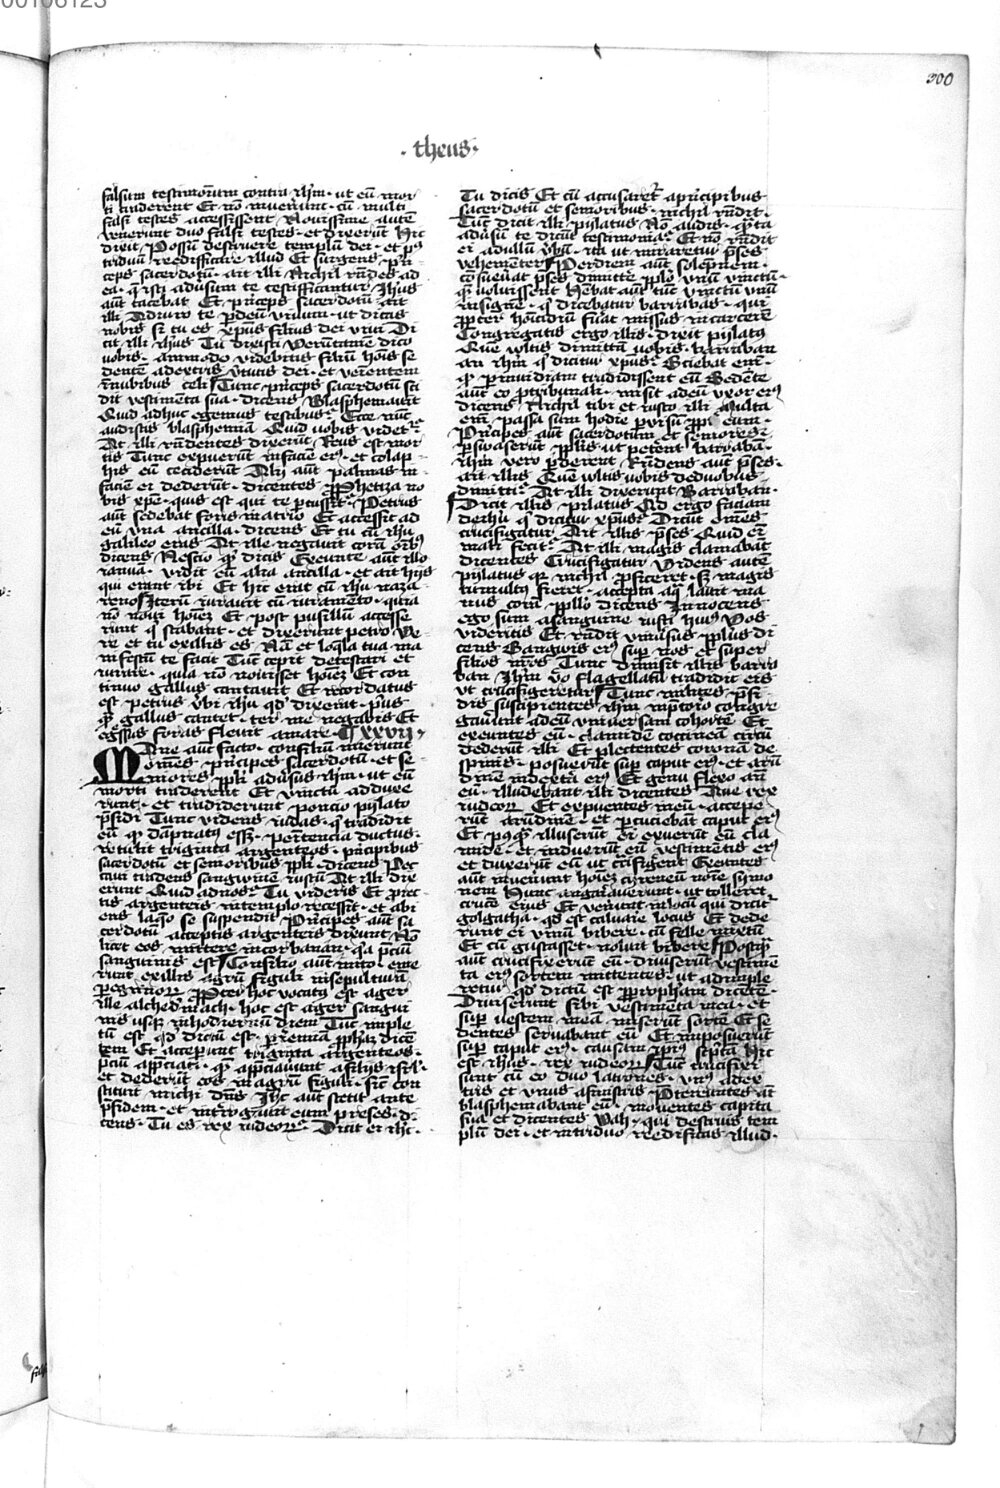 00106123
300
· theus ·
falsum testimoniū contra ihm̄ · ut eū mor
ti traderent Et nō inuenerūt · cū multi
falsi testes accessissent Nouissime autē
venerunt duo falsi testes · et dixerūt Hic
dixit Possū destruere templū dei · et pꝰ
triduū reedificare illud Et surgens prī
ceps sacerdotū · ait illi Nichil rn̄des ad
ea · q̄ isti aduersum te testificantur Ihus
aūt tacebat Et p̄nceps sacerdotū ait
illi Adiuro te p̄ deū viuum · ut dicas
nobis si tu es xp̄us filius dei viui Di
cit illi ihus Tu dixisti Verūtamē dico
uobis · ammodo videbitis filiū hoīs se
dentē adextris v̄tutis dei · et venientem
ī nubibus celi Tunc p̄nceps sacerdotū sci
dit vestimēta sua · dicens Blasphemauit
Quid adhuc egemus testibus Ecce nūc
audistis blasphemiā Quid uobis videtᵉ
At illi rn̄dentes dixerūt Reus est mor
tis Tunc expuerūt in faciē eiꝰ · et colap
his eū ceciderūt Alij aūt palmas in
faciē ei dederūt · dicentes Pphetiza no
bis xp̄e · quis est qui te p̄cussit Petrus
aūt sedebat foris in atrio Et accessit ad
eū vna ancilla · dicens Et tu cū ihu
galileo eras At ille negauit corā oīb
dicens Nescio qd̄ dicis Exeunte aūt illo
ianuā · vidit eū alia ancilla · et ait hijs
qui erant ibi Et hic erat cū ihu naza
reno Iterū negauit cū iuramēto · quia
nō noui hoīez Et post pusillū accesse
runt q̄ stabant · et dixerunt petro Ve
re et tu ex illis es Nā et loq̄la tua ma
nifestū te facit Tunc cepit detestari et
iurare · quia nō nouisset hoīez Et con
tinuo gallus cantauit Et recordatus
est petrus v̄bi ihu qd̄ dixerat · p̄us
q̄ gallus cantet · ter me negabis Et
egr̄ssus foras fleuit amare · xxvij ·
Mane aūt facto · consiliū inierunt
om̄es p̄ncipes sacerdotū · et se
niores ppli aduersus ihm̄ · ut eū
morti traderent Et vinctū adduxe
runt · et tradiderunt poncio pylato
p̄sidi Tunc videns iudas · q̄ tradidit
eū q̄ dāpnatus eēt · penitencia ductus ·
retulit triginta argenteos · p̄ncipibus
sacerdotū et senioribus ppli · dicens Pec
caui tradens sanguinē iustū At illi dix
erunt Quid ad nos Tu videris Et proiec
tis argenteis in templo recessit · et abi
ens laq̄o se suspendit P̄ncipes aūt sa
cerdotū acceptis argenteis dixerūt Nō
licet eos mittere in corbanan · q̄a p̄ciū
sanguinis est Consilio aūt inito · eme
runt ex illis agrū figuli in sepulturā
peregrinoꝝ Ppter hoc vocatus est ager
ille alchedemach · hoc est ager sangui
nis usqꝫ in hodiernū diem Tunc imple
tū est qd̄ dictū est · p̄ ieremiā pphetā dicē
tem Et acceperunt triginta argenteos
p̄ciū app̄ciati · quē app̄ciauerunt a filijs isrl̄ ·
et dederūt eos in agrū figuli · sic con
stituit michi dn̄s Ihc aūt stetit ante
p̄sidem · et interrogauit eum preses · di
cens · Tu es rex iudeoꝝ Dicit ei ihc ·
Tu dicis Et cū accusaretᵉ a p̄ncipibus
sacerdotū et senioribus · nichil rn̄dit ·
Tūc dicit illi pylatus No audis · q̄nta
adūsū te dicūt testimonia Et nō rn̄dit
ei ad ullū v̄bū · ita ut miraretur p̄ses
vehementer Per diem aūt solepnem
cōsueuerat p̄ses dimitte pplo vnū vinctū ·
quē voluissent Habebat aūt tūc vinctū vnū
insignē · q̄ dicebatur barrabas · qui
ppter homicidiū fuerat missus in carcerē
Congregatis ergo illis · dixit pylatus
Quē vultis dimittā uobis · barraban
an ihm̄ q̄ dicitur xp̄us Sciebat enī ·
q̄ p̄ inuidiam tradidissent eū Sedente
aūt eo p̄ tribunali · misit ad eū vxor eiꝰ
dicens Nichil tibi et iusto illi Multa
enī passa sum hodie p̄ visū ppt eum ·
P̄ncipes aūt sacerdotum et seniores
p̄swaserūt pplis ut peterēt barrabā
ihm̄ vero p̄derent Rn̄dens aūt p̄ses ·
ait illis Quē vltis uobis de duobus
dimitti At illi dixerunt Barraban ·
Dicit illis pilatus Qd ergo faciam
de ihu q̄ dicitur xp̄us Dicūt om̄es
crucifigatur Ait illis p̄ses Quid eī
mali fecit At illi magis clamabāt
dicentes Crucifigatur Videns autē
pylatus q̄a nichil p̄ficeret · sꝫ magis
tumultus fieret · accepta aq̄ lauit ma
nus corā pplo dicens Innocens
ego sum a sanguine iusti huiꝰ Vos
videritis Et rn̄dit vniuersus pplus di
cens Sanguis eiꝰ sup nos et super
filios nr̄os Tunc dimisit illis barra
ban Ihm̄ v̄o flagellatū tradidit eis
ut crucifigeretur Tunc milites p̄si
dis suscipientes ihm̄ in p̄torio congre
gauerūt ad eū vniuersam cohortē Et
exeuntes eū · clamidē coccineā circū
dederūt illi Et plectentes coronā de
spinis · posuerūt sup caput eiꝰ · et arū
dinē in dextera eiꝰ Et genu flexo an̄
eū · illudebant illi dicentes Aue rex
iudeoꝝ Et expuentes in eū · accepe
rūt arūdinē · et p̄cuciebāt caput eiꝰ
Et pꝰqꝫ illuserūt ei exuerūt eū cla
mide · et induerūt eū vestimētis eiꝰ
et duxerūt eū ut crucifigerēt Exeuntes
aūt inuenerūt hoīez cyreneū noīe symo
nem Hunc angariauerunt · ut tolleret
crucē eiꝰ Et venerūt in locū qui dicitᵉ
golgatha · qd̄ est caluarie locus Et dede
runt ei vinū bibere · cū felle mixtū
Et cū gustasset · noluit bibere Postq̄
aūt crucifixerūt eū · diuiserūt vestimē
ta eiꝰ sortem mittentes · ut adimple
retur qd̄ dictū est p propham dicētē ·
Diuiserunt sibi vestimēta mea · et
sup uestem meā miserūt sortē Et se
dentes seruabant eū Et imposuerūt
sup caput eiꝰ · causam ip̄iꝰ scp̄tā Hic
est ihus · rex iudeoꝝ Tūc crucifixi
sunt cū eo duo latrones · vnꝰ a dex
tris et vnus a sinistris Pretereuntes aūt
blasphemabant eū · mouentes capita
sua et dicentes Vah · qui destruis tem
plū dei · et in triduo reedificas illud ·